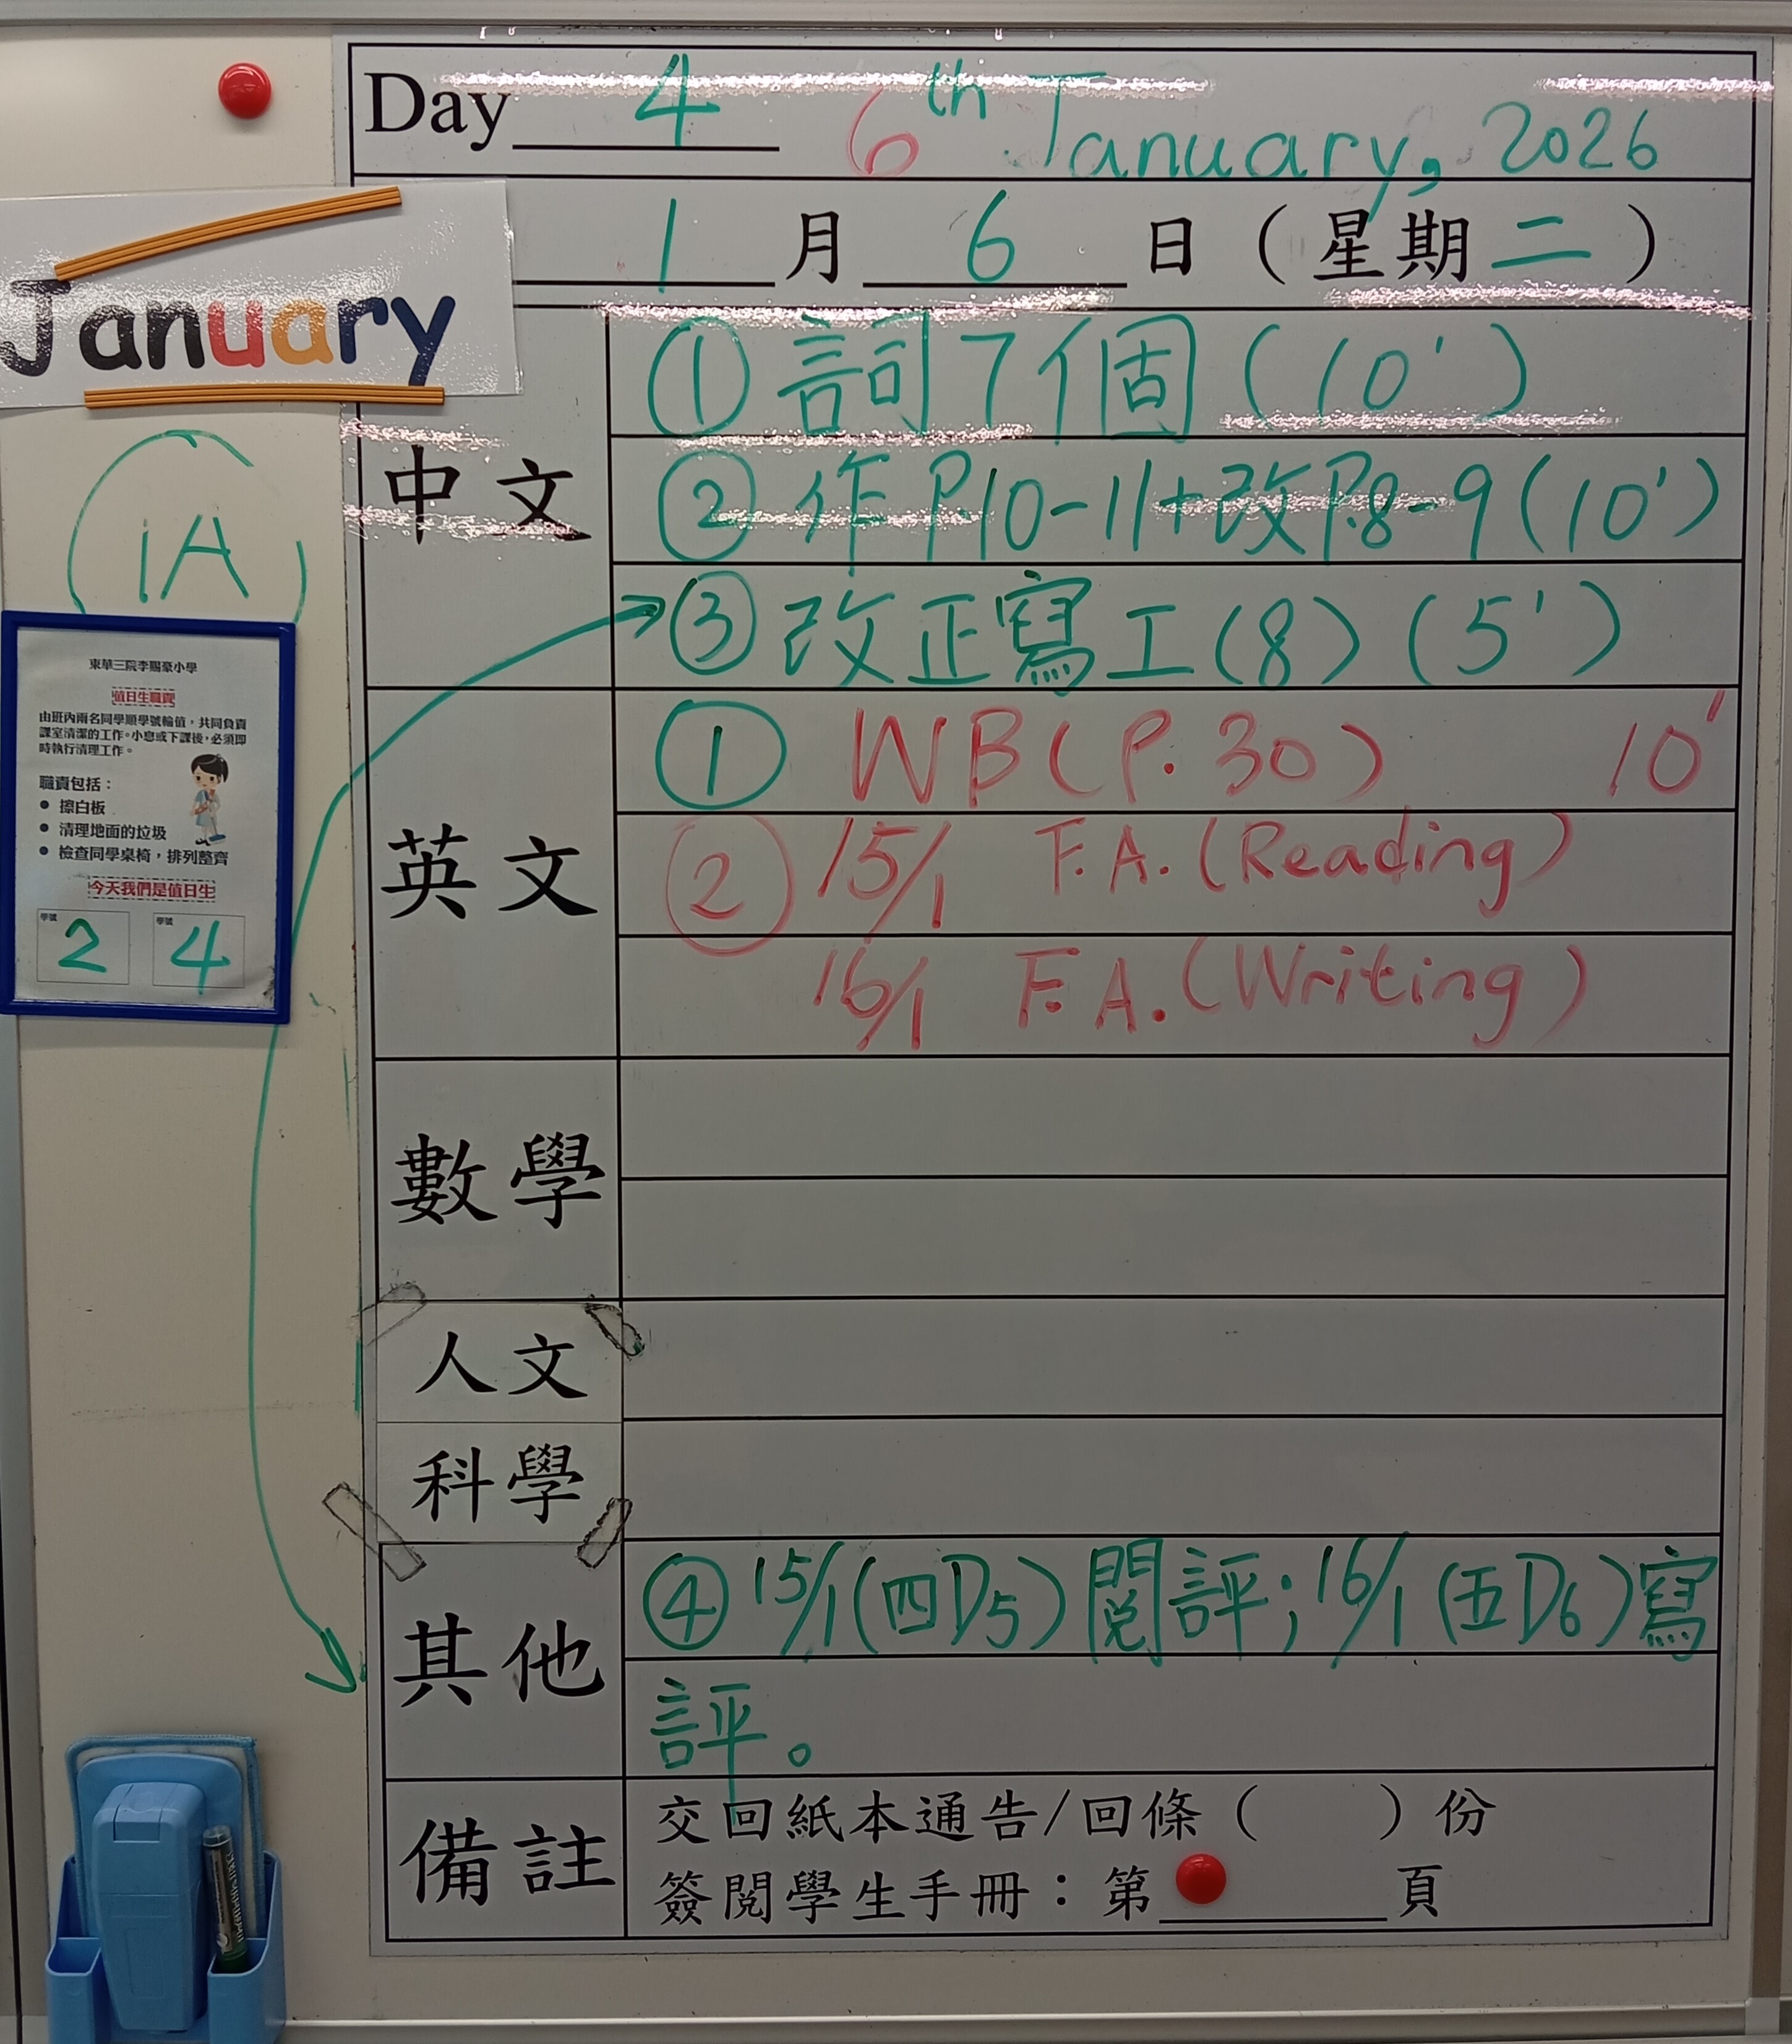 Day 4 6th January, 2026
1 月 6 日 ( 星期 二 )
January
1A
中文
① 詞 7 個 ( 10' )
② 作 P.10-11+改 P.8-9 (10')
③ 改正寫工 (8) (5')
東華三院李賜豪小學
值日生職責
由班內兩名同學順學號輪值，共同負責
課室清潔的工作。小息或下課後，必須即
時執行清理工作。
職責包括：
● 擦白板
● 清理地面的垃圾
● 檢查同學桌椅，排列整齊
今天我們是值日生
學號 2
學號 4
英文
① WB ( P. 30 ) 10'
② 15/1 F.A. (Reading)
16/1 F.A. (Writing)
數學
人文
科學
其他
④ 15/1 (四D5) 閱評; 16/1 (五D6) 寫
評。
備註
交回紙本通告/回條（ ）份
簽閱學生手冊：第 頁